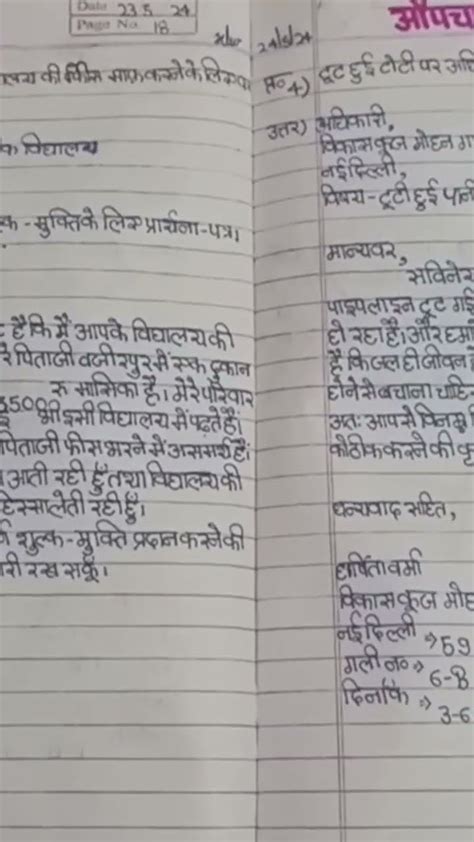 Date 23 5 24
Page No. 18
करने के लिए
विद्यालय
मुक्ति के लिए प्रार्थना-पत्र।
है कि मैं आपके विद्यालय की
पिताजी वजीरपुर में एक दुकान
रु मासिका है। मेरे परिवार
3500
भी इसी विद्यालय में पढ़ते हैं।
पिताजी फीस भरने में असमर्थ हैं।
आती रही हूँ तथा विद्यालय की
हिस्सा लेती रही हूँ।
शुल्क-मुक्ति प्रदान करने की
री रख सकूँ।
औपच
24/5/24
प्र० 4) टूट हुई टोटी पर
उत्तर) अधिकारी,
विकास कूंज मोहन ग
नई दिल्ली,
विषय - टूटी हुई पानी
मान्यवर,
सविनेर
पाइपलाइन टूट गई
हो रहा है। और हमा
है कि जल ही जीवन
होने से बचाना चाहि
अतः आप से विनम्र
को ठीक करने की कृ
धन्यवाद सहित,
हर्षिता वर्मा
विकास कूंज मोह
नई दिल्ली → 59
गली न० → 6-B
दिनांक → 3-6